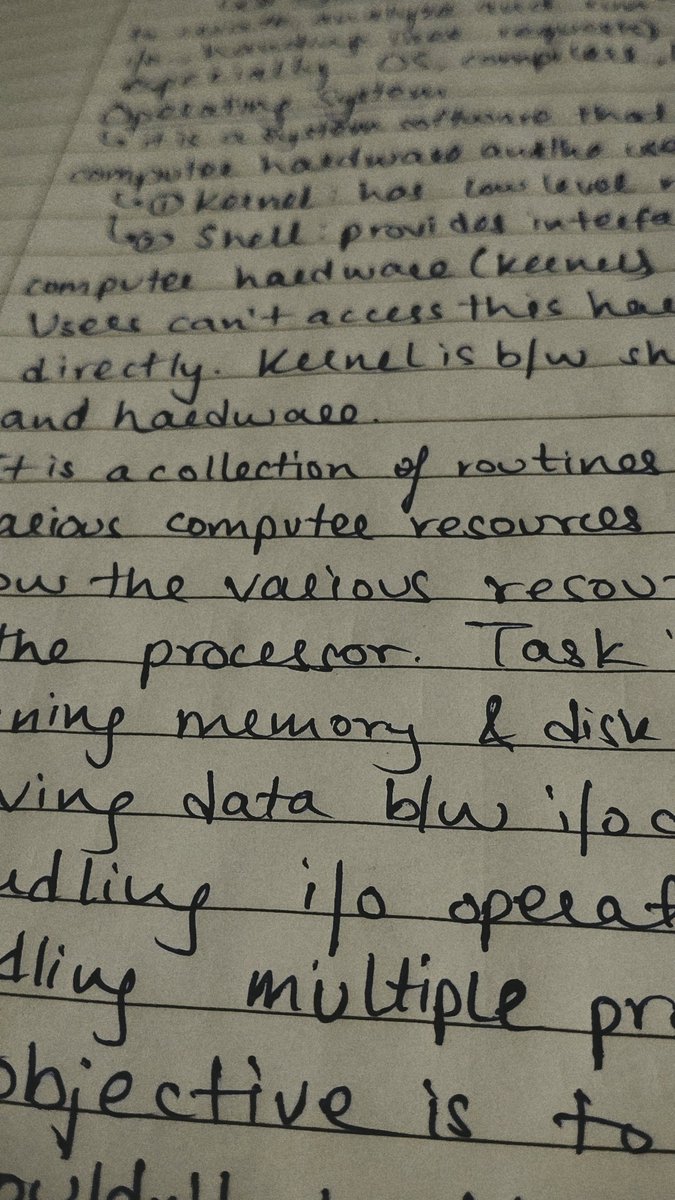 i/o handling user requests)
Specially OS, compilers,
Operating System
it is a system software that
computer hardware and the
① Kernel: has low level
② Shell: provides interfa
computer hardware (kernel)
Users can't access this har
directly. Kernel is b/w sh
and hardware.
t is a collection of routines
arious computer resources
ow the various resour
the processor. Task
ning memory & disk
ving data b/w i/o
ndling i/o operat
dling multiple pr
objective is to